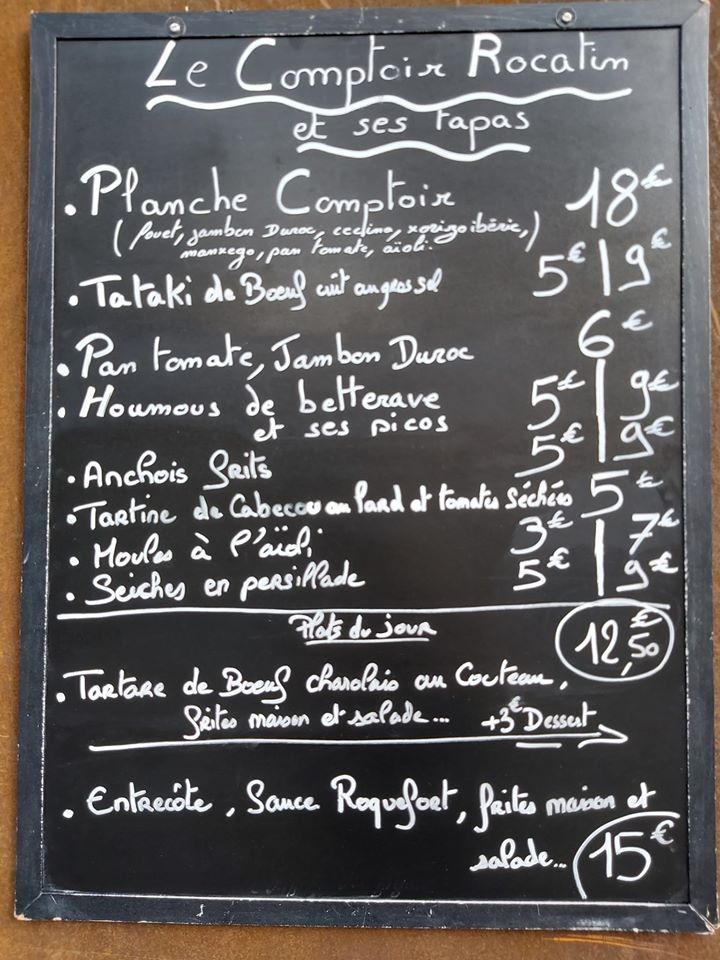 Le Comptoir Rocatin
et ses tapas
• Planche Comptoir 18€
(fouet, jambon Duroc, cecina, xorizo ibéric,
manxego, pan tomate, aïoli.)
• Tataki de Boeuf cuit au gros sel 5€ | 9€
• Pan tomate, Jambon Duroc 6€
• Houmous de betterave 5€ | 9€
et ses picos
• Anchois frits 5€ | 9€
• Tartine de Cabecou au lard et tomates séchées 5€
• Moules à l'aïoli 3€ | 7€
• Seiches en persillade 5€ | 9€
Plats du jour 12,50€
• Tartare de Boeuf charolais au Couteau,
frites maison et salade... +3€ Dessert
• Entrecôte, Sauce Roquefort, frites maison et
salade... 15€